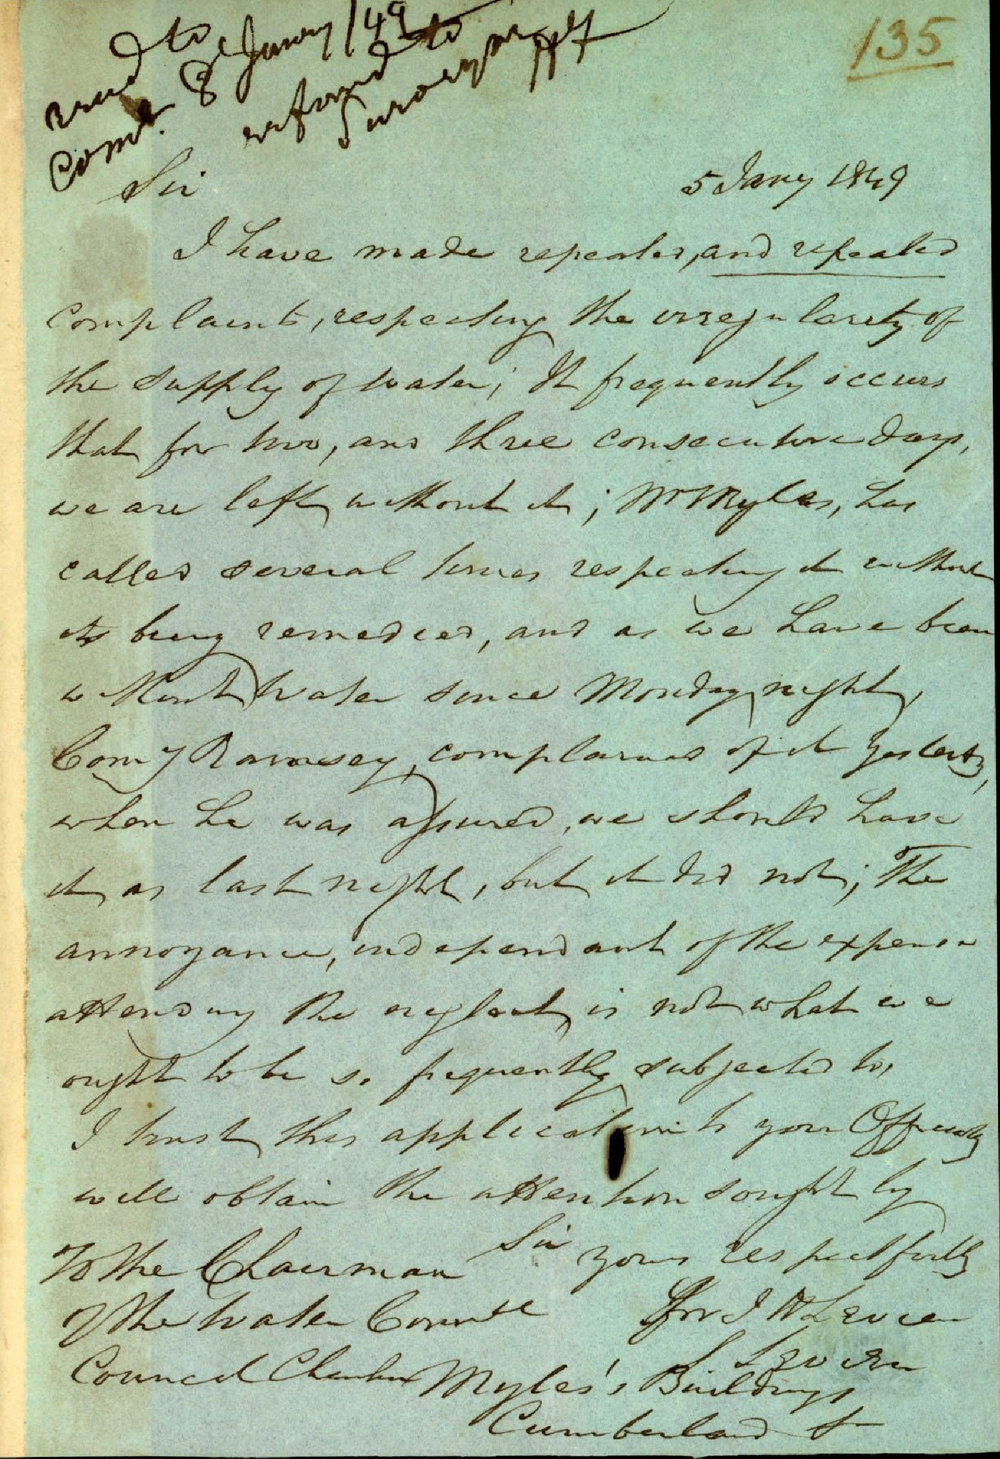 read to
Com.e 8th Jany /49
referred to
Surveyor
135
Sir
5 Jany 1849
I have made repeated, and repeated
complaints, respecting the irregularity of
the supply of water; It frequently occurs
that for two, and three consecutive days,
we are left without it; Mr Myles, has
called several times respecting it without
its being remedied, and as we have been
without Water since Monday night,
Comy Ramsey, complained of it yesterdy,
when he was assured, we should have
it as last night, but it did not; The
annoyance, independant of the expence
attending the neglect, is not what we
ought to be so frequently subjected to,
I trust this application to your Officially
will obtain the attention sought by
Sir yours respectfully
To the Chairman
of the Water Committee
for J
Council Chamber
Myles's Buildings
Cumberland St